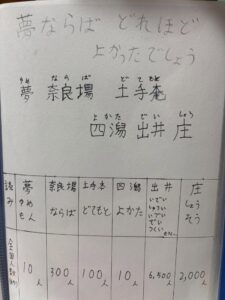 夢ならば どれほど
よかったでしょう
ゆめ ならば どてもと
夢 奈良場 土手菴
よかた でい しょう
四潟 出井 庄
読み 夢 ゆめ もん 奈良場 ならば 土手本 どてもと 四潟 よかた 出井 いでい しゅつい いでい でい つくい 庄 しょう そう
全国人数 10人 300人 100人 10人 6,500人 2,000人